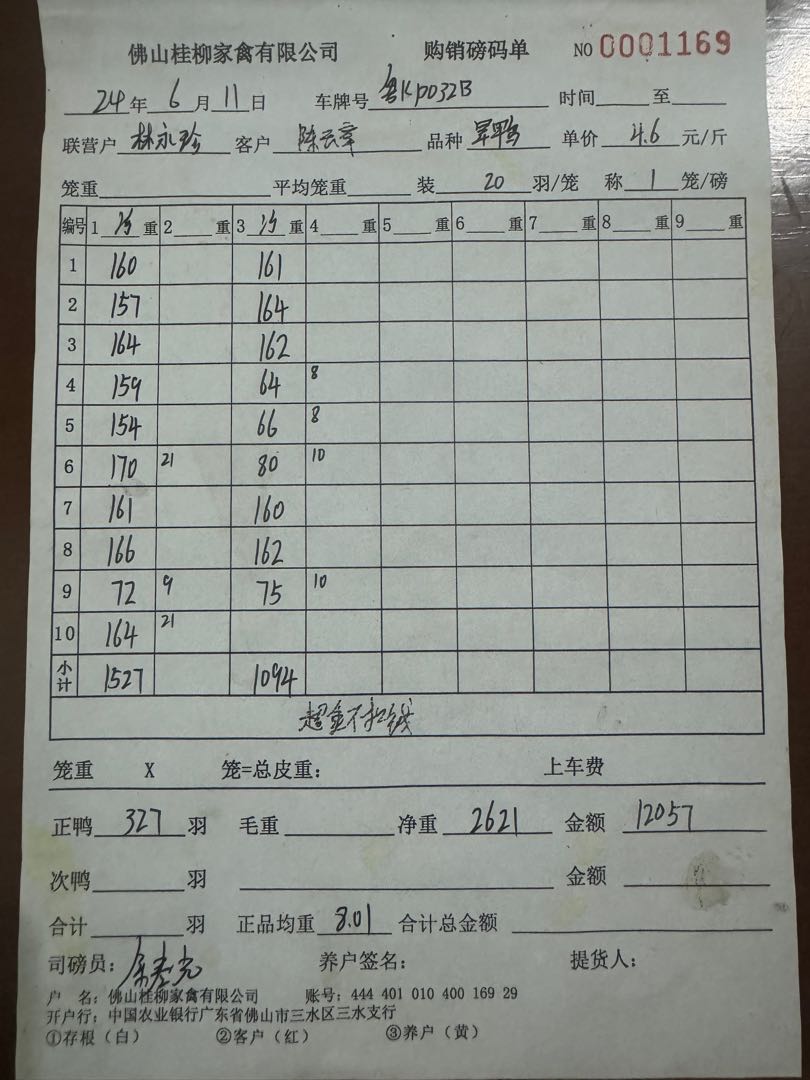 佛山桂柳家禽有限公司 购销磅码单 NO 0001169
24年 6月 11日 车牌号 粤KP032B 时间 至
联营户 林永珍 客户 陈云章 品种 旱鸭 单价 4.6 元/斤
笼重 平均笼重 装 20 羽/笼 称 1 笼/磅
编号 1 净 重 2 重 3 净 重 4 重 5 重 6 重 7 重 8 重 9 重
1 160 161
2 157 164
3 164 162
4 159 64 8
5 154 66 8
6 170 21 80 10
7 161 160
8 166 162
9 72 9 75 10
10 164 21
小计 1527 1094
超重不扣钱
笼重 X 笼=总皮重: 上车费
正鸭 327 羽 毛重 净重 2621 金额 12057
次鸭 羽 金额
合计 羽 正品均重 8.01 合计总金额
司磅员: 养户签名: 提货人:
户 名: 佛山桂柳家禽有限公司 账号: 444 401 010 400 169 29
开户行: 中国农业银行广东省佛山市三水区三水支行
①存根(白) ②客户(红) ③养户(黄)